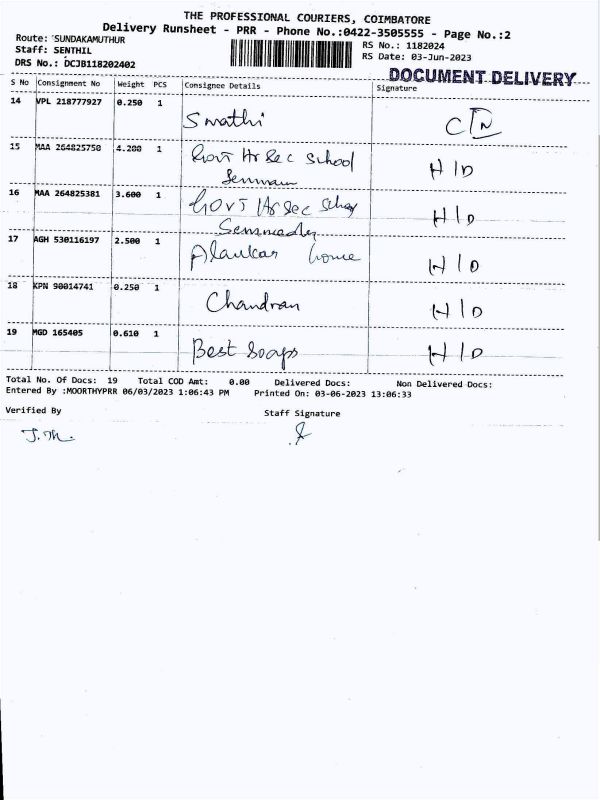 THE PROFESSIONAL COURIERS, COIMBATORE
Delivery Runsheet - PRR - Phone No.:0422-3505555 - Page No.:2
Route: 'SUNDAKAMUTHUR
RS No.: 1182024
Staff: SENTHIL
RS Date: 03-Jun-2023
DRS No.: DCJB118202402
DOCUMENT DELIVERY
S No Consignment No Weight PCS Consignee Details Signature
14 VPL 218777927 0.250 1 Swathi
15 MAA 264825750 4.200 1 Govt Hr Sec School H/D
16 MAA 264825381 3.600 1 Govt Hr Sec H/D
17 AGH 530116197 2.500 1 Alankar home H/D
18 KPN 90014741 0.250 1 Chandran H/D
19 MGD 165405 0.610 1 Best Soaps H/D
Total No. Of Docs: 19 Total COD Amt: 0.00 Delivered Docs: Non Delivered Docs:
Entered By :MOORTHYPRR 06/03/2023 1:06:43 PM Printed On: 03-06-2023 13:06:33
Verified By Staff Signature